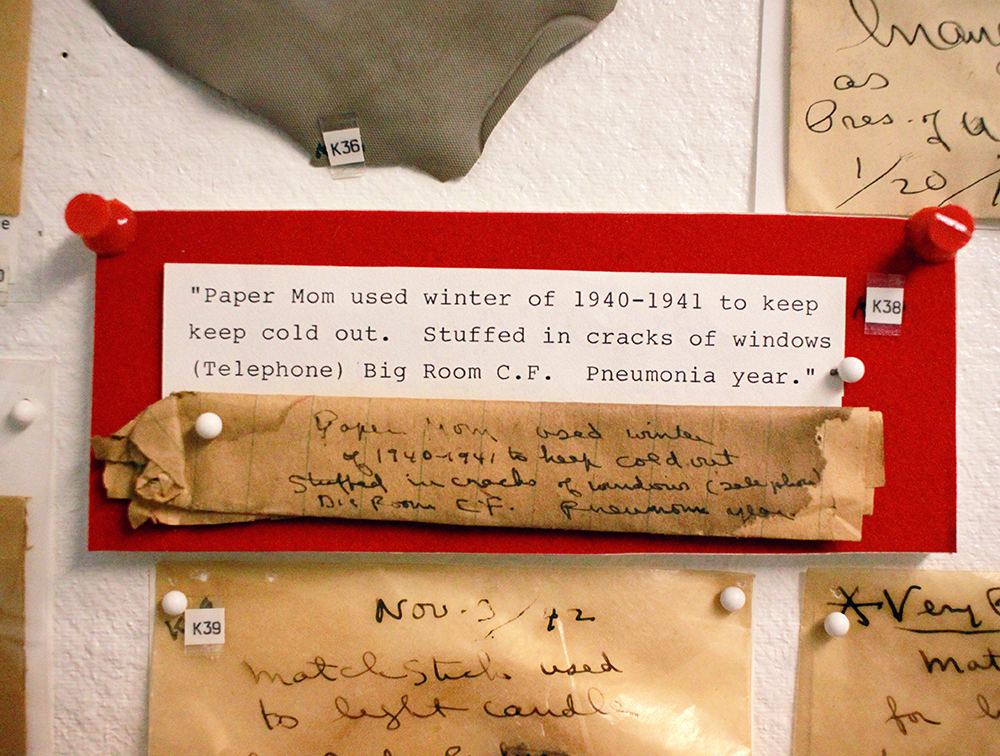 Many
as
Pres. of U
1/20/1
K36
e
0
"Paper Mom used winter of 1940-1941 to keep
keep cold out. Stuffed in cracks of windows
(Telephone) Big Room C.F. Pneumonia year."
K38
Paper Mom used winter
of 1940-1941 to keep cold out
Stuffed in cracks of windows (Telephon
Big Room C.F. Pneumonia year.
K39
Nov. 3/42
Matchstick used
to light candle
Very
Mat
for